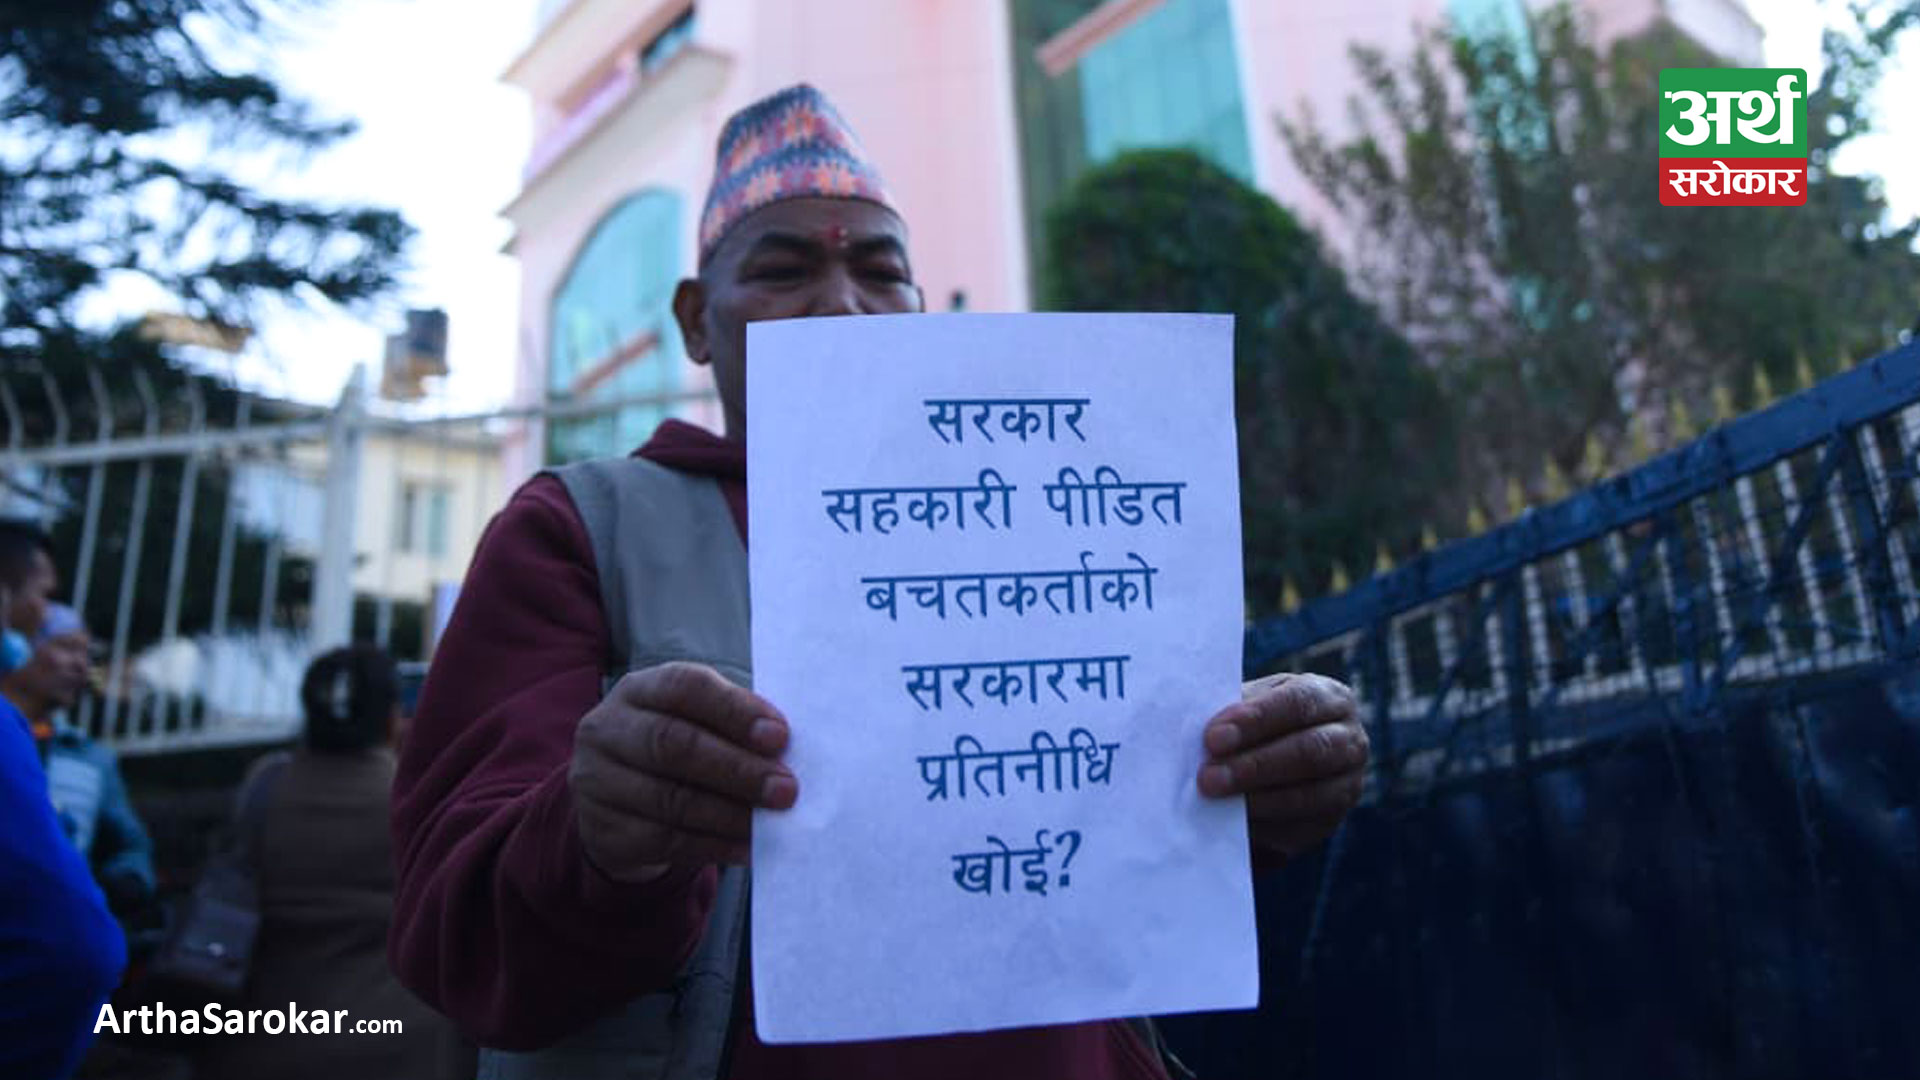 अर्थ
सरोकार
सरकार
सहकारी पीडित
बचतकर्ताको
सरकारमा
प्रतिनीधि
खोई?
ArthaSarokar.com